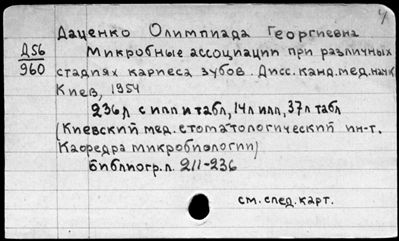 Даценко Олимпиада Георгиевна
Д56
960
Микробные ассоциации при различных
стадиях кариеса зубов. Дисс. канд. мед. наук
Киев, 1954
236л с илл и табл, 14л илл, 37л табл
(Киевский мед. стоматологический ин-т.
Кафедра микробиологии)
Библиогр. л. 211-236
см. след. карт.